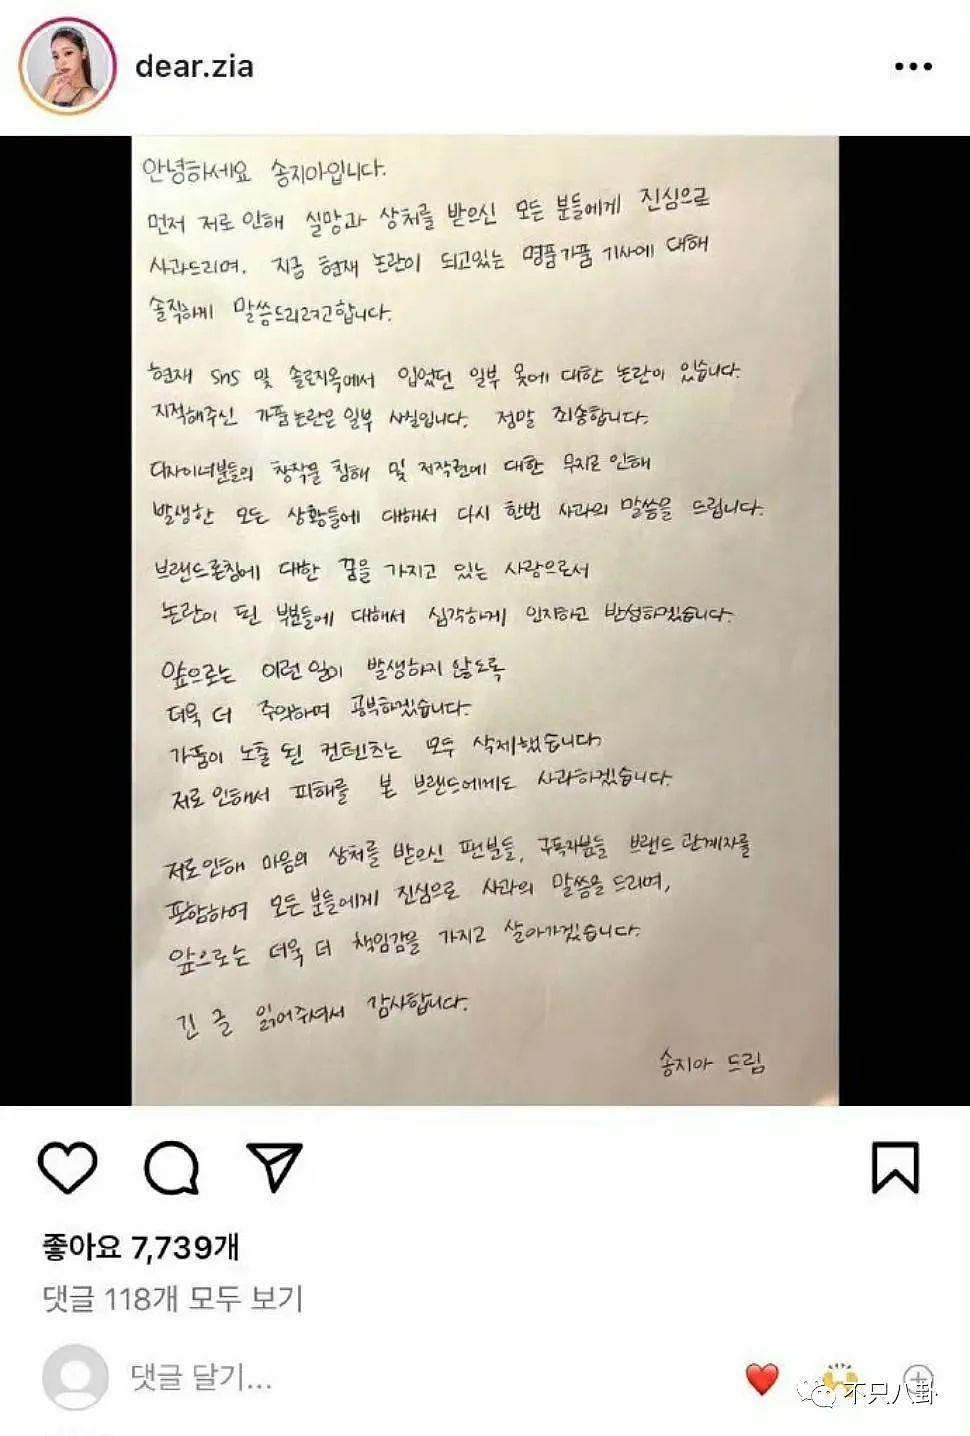 dear.zia
안녕하세요 송지아입니다.
먼저 저로 인해 실망과 상처를 받으신 모든 분들에게 진심으로
사과드리며, 지금 현재 논란이 되고있는 명품가품 기사에 대해
솔직하게 말씀드리려고합니다.
현재 sns 및 솔로지옥에서 입었던 일부 옷에 대한 논란이 있습니다.
지적해주신 가품논란은 일부 사실입니다. 정말 죄송합니다.
디자이너분들의 창작물 침해 및 저작권에 대한 무지로 인해
발생한 모든 상황들에 대해서 다시 한번 사과의 말씀을 드립니다.
브랜드론칭에 대한 꿈을 가지고 있는 사람으로서
논란이 된 부분들에 대해서 심각하게 인지하고 반성하겠습니다.
앞으로는 이런 일이 발생하지 않도록
더욱 더 주의하며 공부하겠습니다.
가품이 노출 된 컨텐츠는 모두 삭제했습니다.
저로 인해서 피해를 본 브랜드에게도 사과하겠습니다.
저로 인해 마음의 상처를 받으신 팬분들, 구독자분들 브랜드 관계자를
포함하여 모든 분들에게 진심으로 사과의 말씀을 드리며,
앞으로는 더욱 더 책임감을 가지고 살아가겠습니다.
긴 글 읽어주셔서 감사합니다.
송지아 드림
좋아요 7,739개
댓글 118개 모두 보기
댓글 달기...
不只八卦